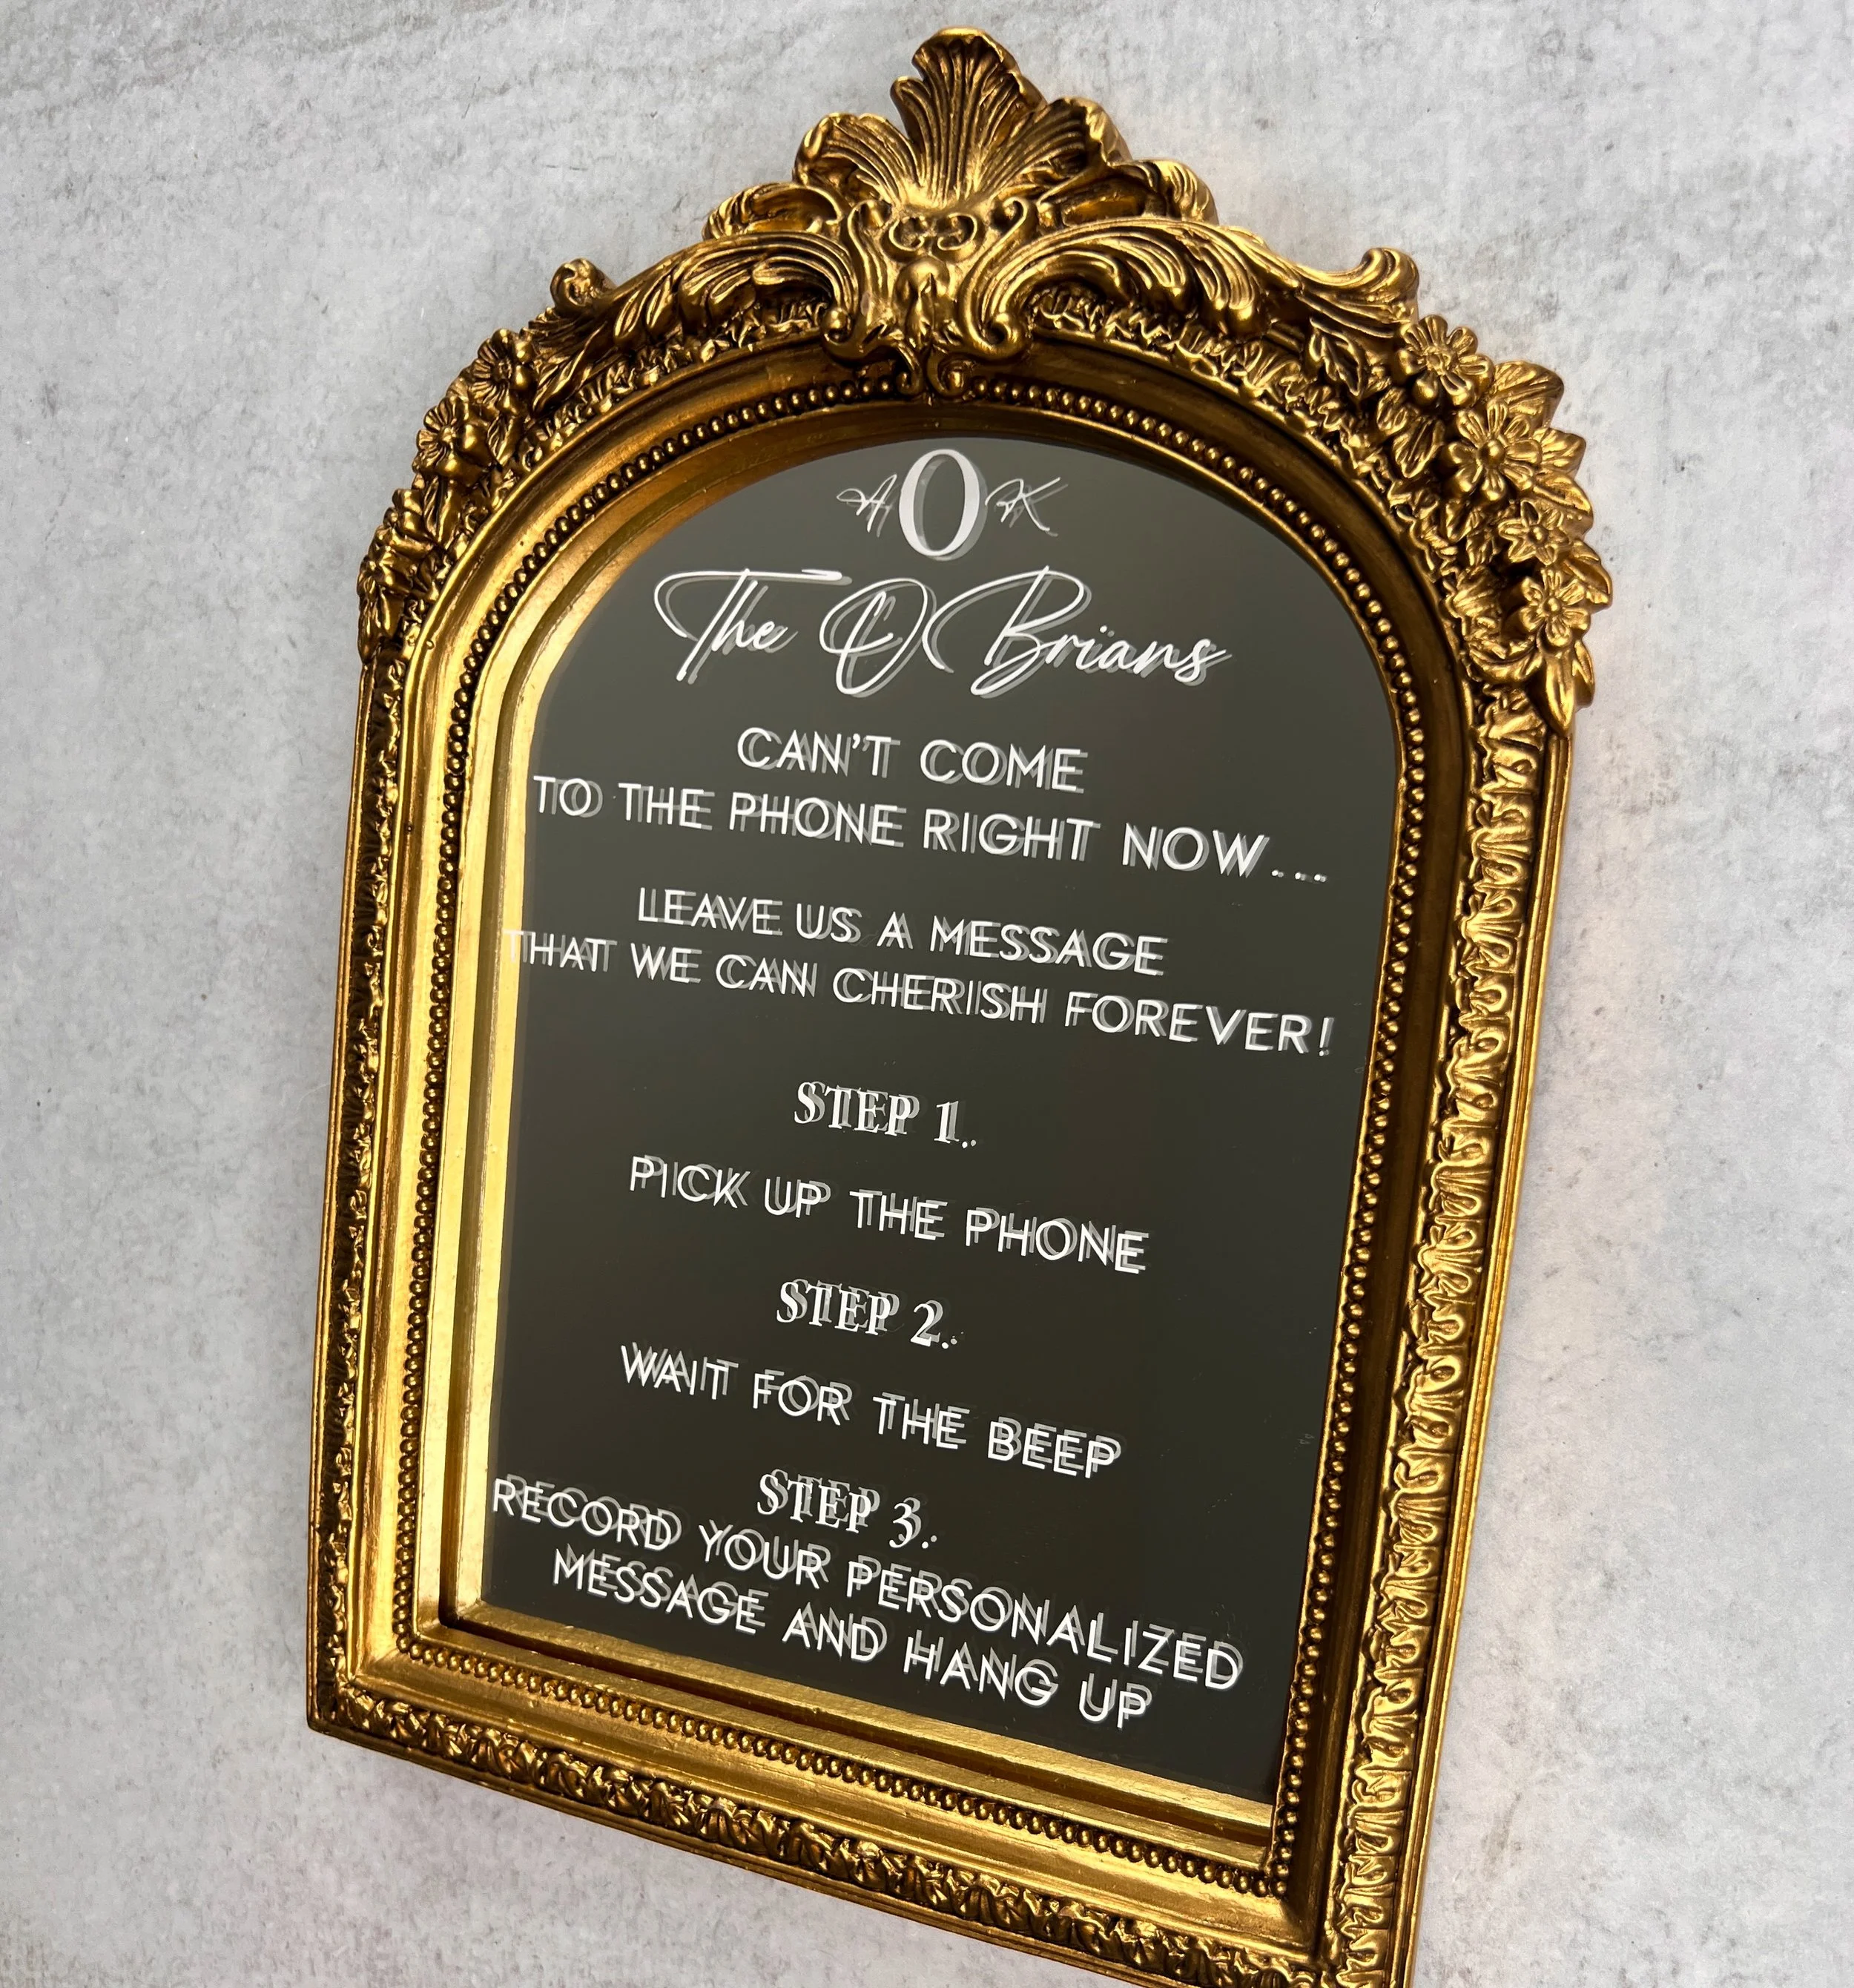 A O K
The O'Brians
CAN'T COME
TO THE PHONE RIGHT NOW...
LEAVE US A MESSAGE
THAT WE CAN CHERISH FOREVER!
STEP 1.
PICK UP THE PHONE
STEP 2.
WAIT FOR THE BEEP
STEP 3.
RECORD YOUR PERSONALIZED
MESSAGE AND HANG UP